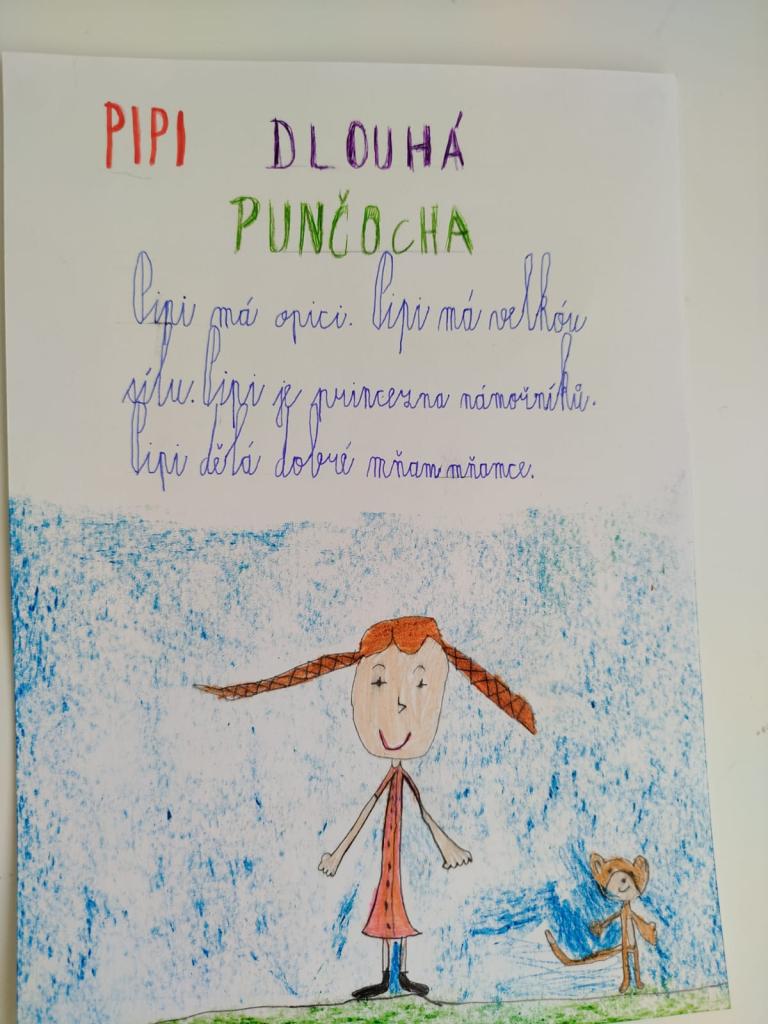 PIPI DLOUHÁ
PUNČOCHA
Pipi má opici. Pipi má velkou
sílu. Pipi je princezna námořníků.
Pipi dělá dobré mňam mňamce.